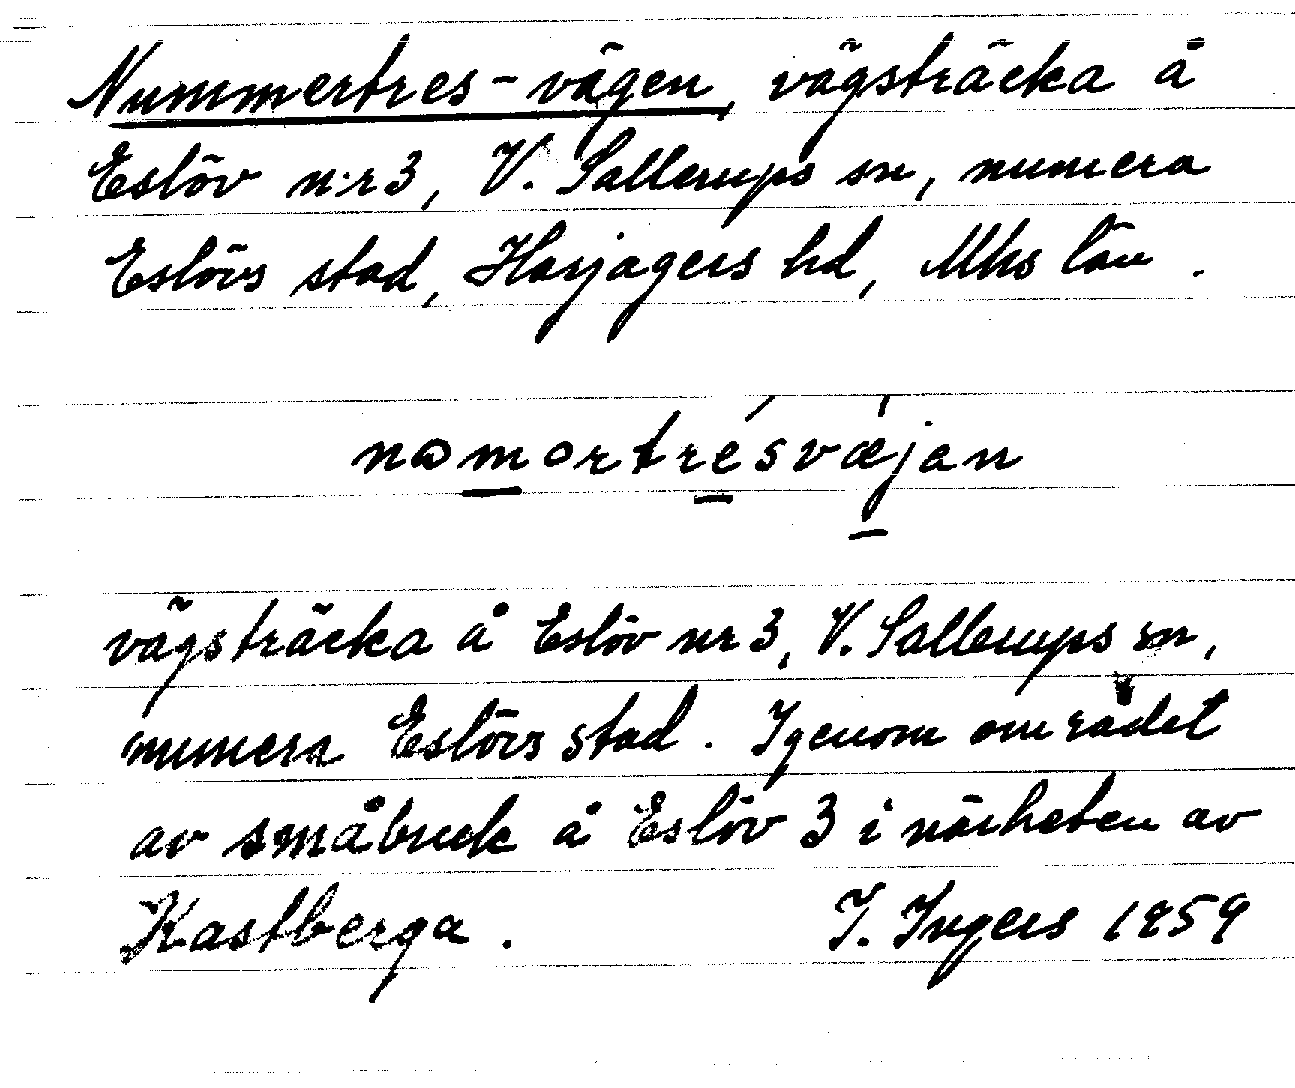 Nummertres-vägen, vägsträcka å
Eslöv nr 3, V. Sallerups sn, numera
Eslövs stad, Harjagers hd, Mhs län.
nomortrésvæjan
vägsträcka å Eslöv nr 3, V. Sallerups sn,
numera Eslövs stad. Igenom området
av småbruk å Eslöv 3 i närheten av
Kastberga. I. Ingers 1959